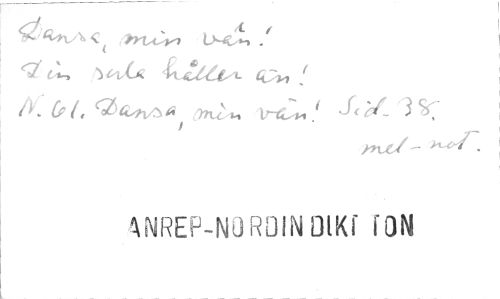 Dansa, min vän!
Din sula håller än!
N. 61. Dansa, min vän! Sid. 38.
mel-not.
ANREP-NORDIN DIKT TON